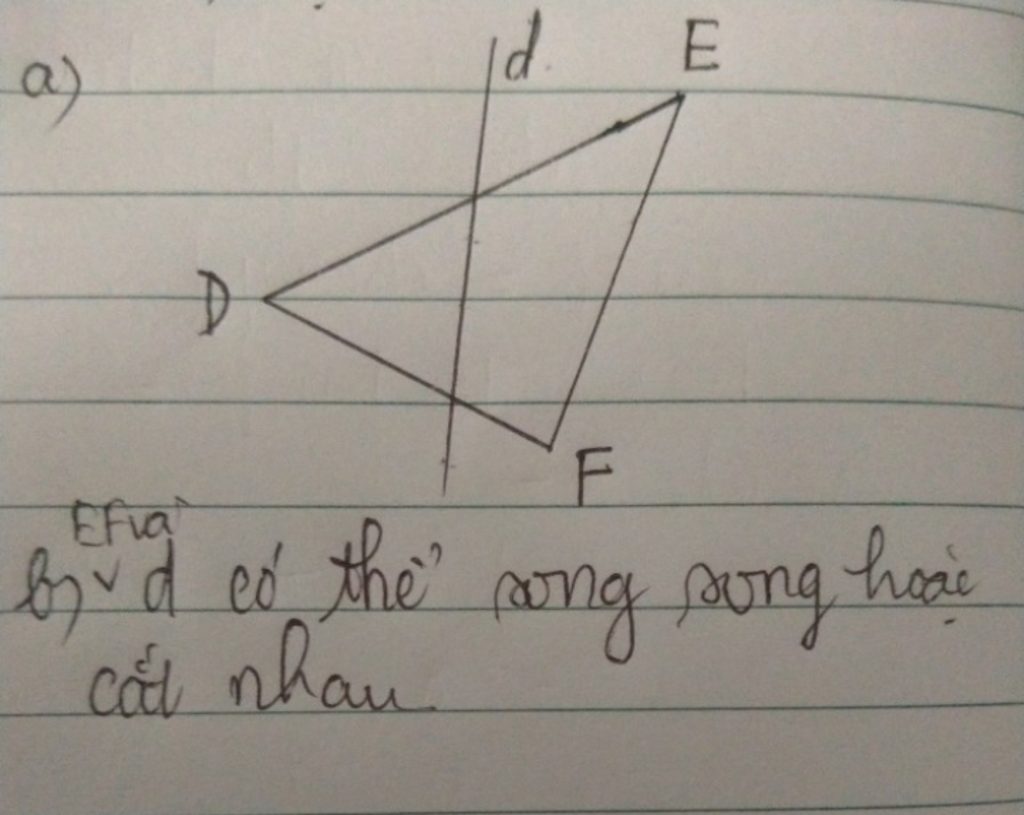 a)
d
E
D
F
EF và
b) d có thể song song hoặc
cắt nhau